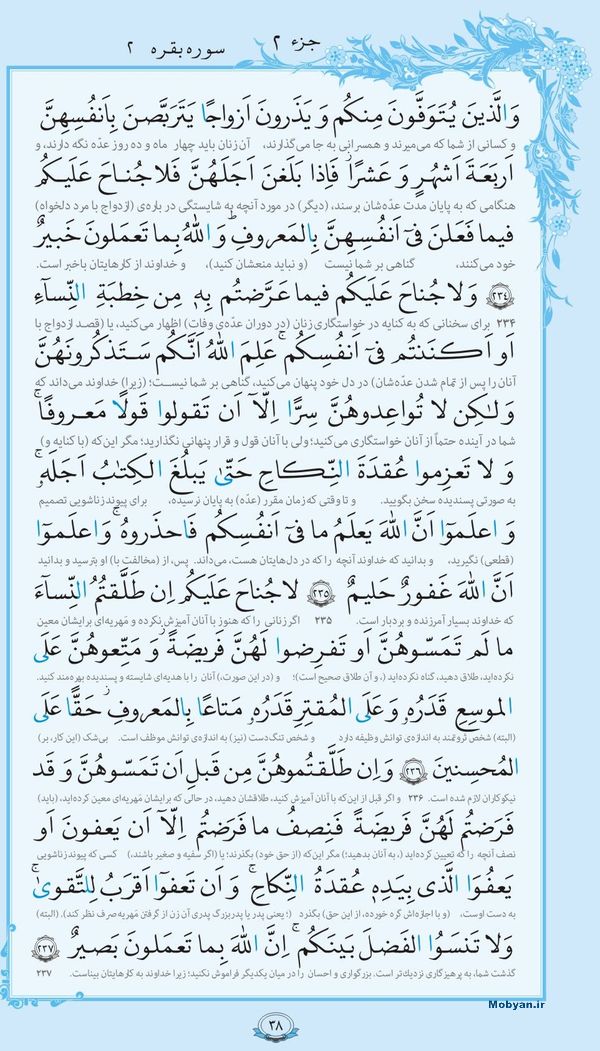 جزء ۲
سوره بقره ۲
وَالَّذینَ یُتَوَفَّونَ مِنکُم وَ یَذَرونَ اَزواجًا یَتَرَبَّصنَ بِاَنفُسِهِنَّ
و کسانی از شما که می‌میرند و همسرانی به جا می‌گذارند، آن زنان باید چهار ماه و ده روز عدّه نگه دارند، و
اَربَعَةَ اَشهُرٍ وَ عَشرًا فَاِذا بَلَغنَ اَجَلَهُنَّ فَلا جُناحَ عَلَیکُم
هنگامی که به پایان مدت عدّه‌شان برسند، (دیگر) در مورد آنچه به شایستگی در باره‌ی (ازدواج با مرد دلخواه)
فیما فَعَلنَ فی اَنفُسِهِنَّ بِالمَعروفِ وَ اللهُ بِما تَعمَلونَ خَبیرٌ
خود می‌کنند، گناهی بر شما نیست (و نباید منعشان کنید)، و خداوند از کارهایتان باخبر است.
﴿۲۳۴﴾ وَلا جُناحَ عَلَیکُم فیما عَرَّضتُم بِهٖ مِن خِطبَةِ النِّساءِ
۲۳۴ برای سخنانی که به کنایه در خواستگاری زنان (در دوران عدّه‌ی وفات) اظهار می‌کنید، یا (قصد ازدواج با
اَو اَکنَنتُم فی اَنفُسِکُم عَلِمَ اللهُ اَنَّکُم سَتَذکُرونَهُنَّ
آنان را پس از تمام شدن عدّه‌شان) در دل خود پنهان می‌کنید، گناهی بر شما نیست؛ (زیرا) خداوند می‌داند که
وَلٰکِن لا تُواعِدوهُنَّ سِرًّا اِلّا اَن تَقولوا قَولًا مَعروفًا
شما در آینده حتماً از آنان خواستگاری می‌کنید؛ ولی با آنان قول و قرار پنهانی نگذارید؛ مگر این‌که (با کنایه و)
وَ لا تَعزِموا عُقدَةَ النِّکاحِ حَتّیٰ یَبلُغَ الکِتٰبُ اَجَلَهٗ
به صورتی پسندیده سخن بگویید. و تا وقتی که زمان مقرر (عدّه) به پایان نرسیده، برای پیوند زناشویی تصمیم
وَ اعلَموا اَنَّ اللهَ یَعلَمُ ما فی اَنفُسِکُم فَاحذَروهُ وَ اعلَموا
(قطعی) نگیرید، و بدانید که خداوند آنچه را که در دل‌هایتان هست، می‌داند. پس، از (مخالفت با) او بترسید و بدانید
اَنَّ اللهَ غَفورٌ حَلیمٌ ﴿۲۳۵﴾ لا جُناحَ عَلَیکُم اِن طَلَّقتُمُ النِّساءَ
که خداوند بسیار آمرزنده و بردبار است. ۲۳۵ اگر زنانی را که هنوز با آنان آمیزش نکرده و مَهریه‌ای برایشان معین
ما لَم تَمَسّوهُنَّ اَو تَفرِضوا لَهُنَّ فَریضَةً وَ مَتِّعوهُنَّ عَلَی
نکرده‌اید، طلاق دهید، گناه نکرده‌اید (، و آن طلاق صحیح است)؛ و (در این صورت،) آنان را با هدیه‌ای شایسته و پسندیده بهره‌مند کنید.
الموسِعِ قَدَرُهٗ وَ عَلَی المُقتِرِ قَدَرُهٗ مَتاعًا بِالمَعروفِ حَقًّا عَلَی
(البته) شخص ثروتمند به اندازه‌ی توانش وظیفه دارد و شخص تنگ‌دست (نیز) به اندازه‌ی توانش موظف است. بی‌شک (این کار، بر)
المُحسِنینَ ﴿۲۳۶﴾ وَ اِن طَلَّقتُموهُنَّ مِن قَبلِ اَن تَمَسّوهُنَّ وَ قَد
نیکوکاران لازم شده است. ۲۳۶ و اگر قبل از این‌که با آنان آمیزش کنید، طلاقشان دهید، در حالی که برایشان مَهریه‌ای معین کرده‌اید، (باید)
فَرَضتُم لَهُنَّ فَریضَةً فَنِصفُ ما فَرَضتُم اِلّا اَن یَعفونَ اَو
نصف آنچه را که تعیین کرده‌اید (، به آنان بدهید)؛ مگر این‌که (از حق خود) بگذرند؛ یا (اگر سفیه و صغیر باشند،) کسی که پیوند زناشویی
یَعفُوَا الَّذی بِیَدِهٖ عُقدَةُ النِّکاحِ وَ اَن تَعفوا اَقرَبُ لِلتَّقویٰ
به دست اوست، (و با اجازه‌اش گره خورده، از این حق) بگذرد (؛ یعنی پدر یا پدربزرگ پدری آن زن از گرفتن مَهریه صرف نظر کند). (البته)
وَلا تَنسَوُا الفَضلَ بَینَکُم اِنَّ اللهَ بِما تَعمَلونَ بَصیرٌ ﴿۲۳۷﴾
گذشت شما، به پرهیزگاری نزدیک‌تر است. بزرگواری و احسان را در میان یکدیگر فراموش نکنید؛ زیرا خداوند به کارهایتان بیناست. ۲۳۷
Mobyan.ir
۳۸